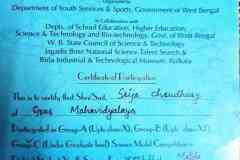 Organised by
Department of Youth Services & Sports, Government of West Bengal
In Collaboration with
Depts. of School Education, Higher Education,
Science & Technology and Bio-technology, Govt. of West Bengal
W. B. State Council of Science & Technology
Jagadis Bose National Science Talent Search &
Birla Industrial & Technological Museum, Kolkata
Certificate of Participation
This is to certify that Shri/Smt. Srija Choudhury
of Mahavidyalaya
Participated in Group-A (Upto class X), Group-B (Upto class XII)
Group-C (Under Graduate level) Science Model Competition